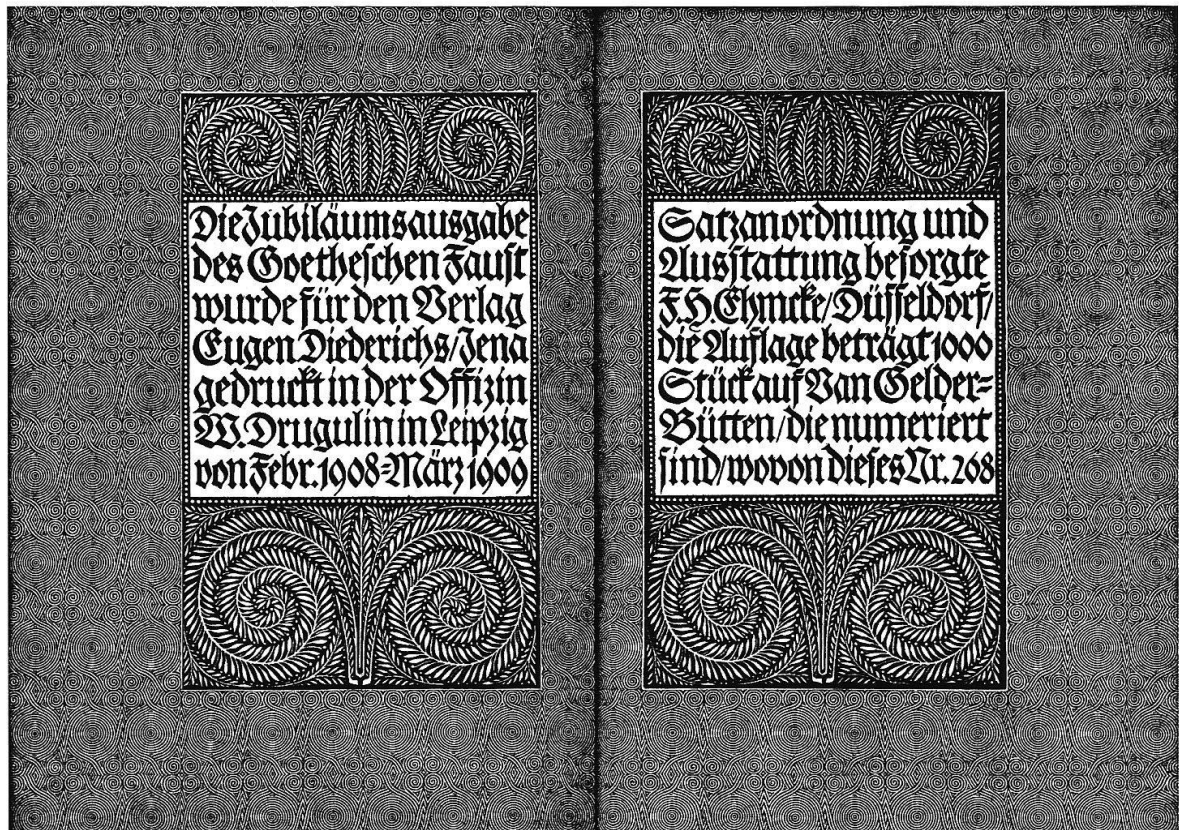 Die Jubiläumsausgabe
des Goetheschen Faust
wurde für den Verlag
Eugen Diederichs/Jena
gedruckt in der Offizin
W. Drugulin in Leipzig
von Febr. 1908=März 1909
Satzanordnung und
Ausstattung besorgte
F. H. Ehmcke/Düsseldorf/
die Auflage beträgt 1000
Stück auf Van Gelder=
Bütten/die numeriert
sind/wovon dieses Nr. 268